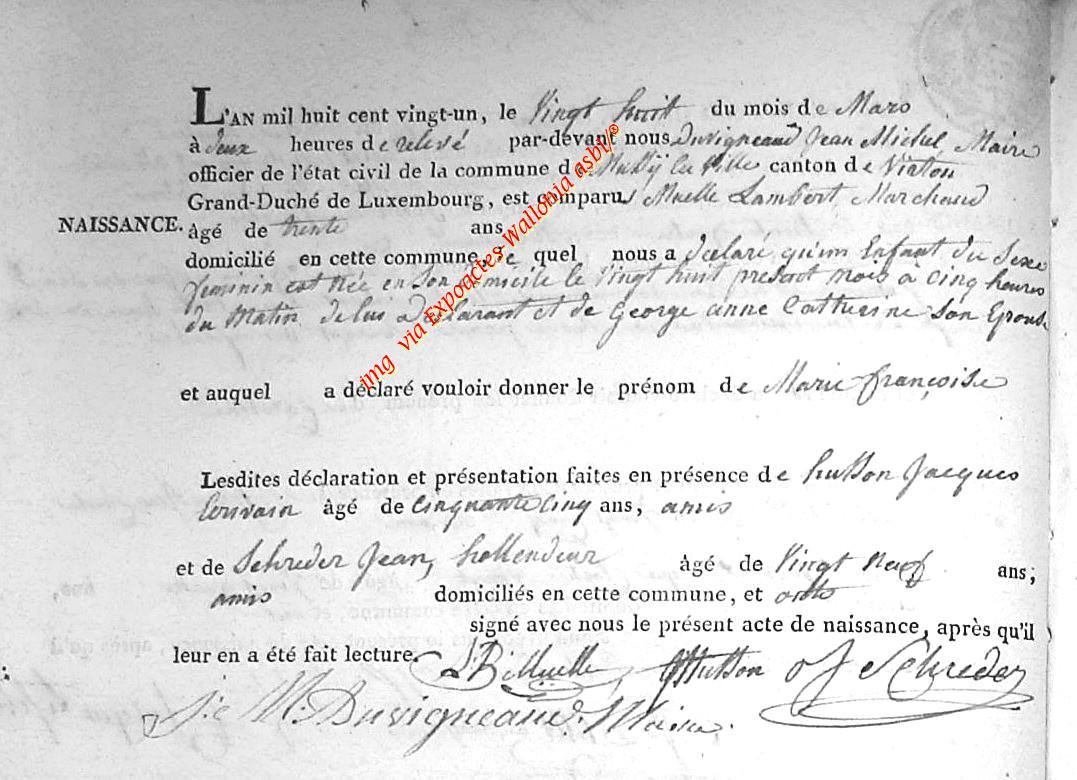 L'AN mil huit cent vingt-un, le Vingt huit du mois de Mars
à deux heures de relevé par-devant nous Duvigneaud Jean Michel Maire
officier de l'état civil de la commune de la Ville canton de Virton
Grand-Duché de Luxembourg, est comparu Muelle Lambert Marchand
NAISSANCE. âgé de trente ans
domicilié en cette commune, le quel nous a déclaré qu'un Enfant du Sexe
feminin est née en son domicile le Vingt huit present mois à Cinq heures
du Matin de lui Declarant et de George anne Catherine Son Epouse
et auquel a déclaré vouloir donner le prénom de Marie françoise
Lesdites déclaration et présentation faites en présence de husson Jacques
Ecrivain âgé de Cinquante Cinq ans, amis
et de Schreder Jean, âgé de Vingt Neuf ans;
amis domiciliés en cette commune, et onts
signé avec nous le présent acte de naissance, après qu'il
leur en a été fait lecture. Muelle Husson J Schreder
Duvigneaud. Maire.
img via Expoactes-Wallonia asbl/©